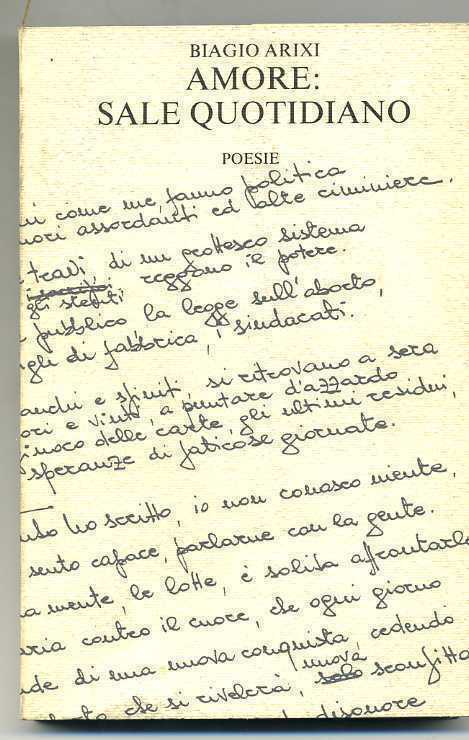 BIAGIO ARIXI
AMORE:
SALE QUOTIDIANO
POESIE
ui come me, fanno politica
ori assordanti ed alte ciminiere.
travi, di un grottesco sistema
gli statuti reggono il potere.
pubblico la legge sull'aborto,
gli di fabbrica, i sindacati.
anchi e spinti, si ritrovano a sera
ori e vinti, a puntare d'azzardo
giuoco delle carte, gli ultimi residui,
speranze di faticose giornate.
ho scritto, io non conosco niente,
sento capace, parlarne con la gente.
a mente, le lotte, è solita affrontarle
aria contro il cuore, che ogni giorno
de di una nuova conquista, cedendo
che si rivelerà, nuova
solo sconfitta
disonore